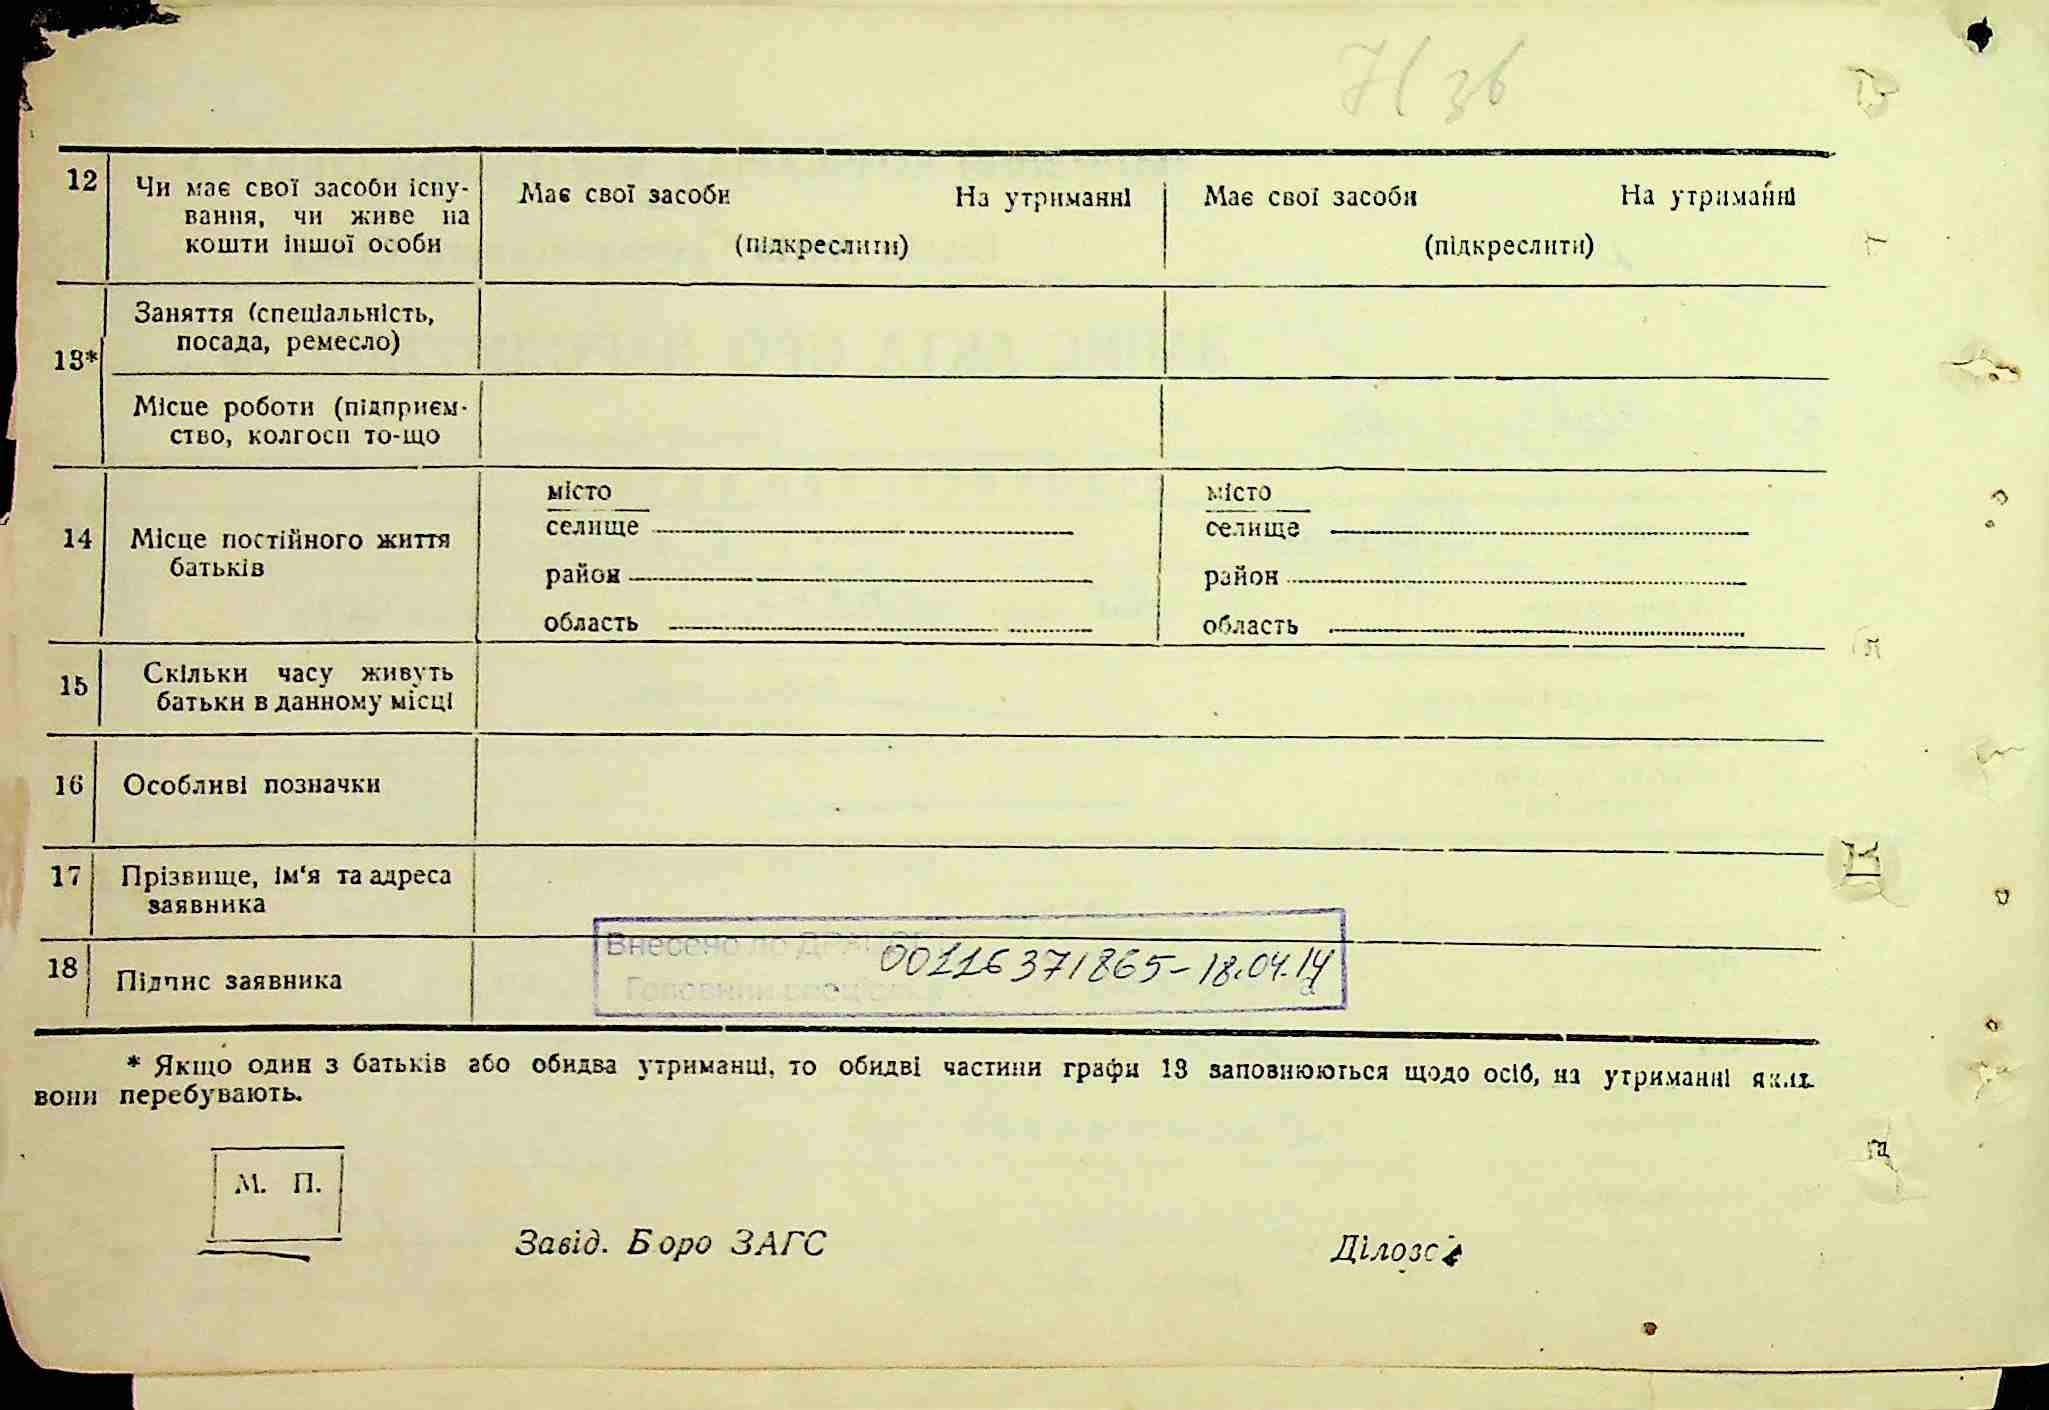 12 Чи має свої засоби існу-
вання, чи живе на
кошти іншої особи
Має свої засоби На утриманні
(підкреслити)
Має свої засоби На утриманні
(підкреслити)
13*
Заняття (спеціальність,
посада, ремесло)
Місце роботи (підприєм-
ство, колгосп то-що
14 Місце постійного життя
батьків
місто
селище
район
область
місто
селище
район
область
15 Скільки часу живуть
батьки в данному місці
16 Особливі позначки
17 Прізвище, ім'я та адреса
заявника
18 Підпис заявника
Внесено до
00116371865-18.04.14
* Якщо один з батьків або обидва утриманці, то обидві частини графи 13 заповнюються щодо осіб, на утриманні яких
вони перебувають.
М. П.
Завід. Боро ЗАГС